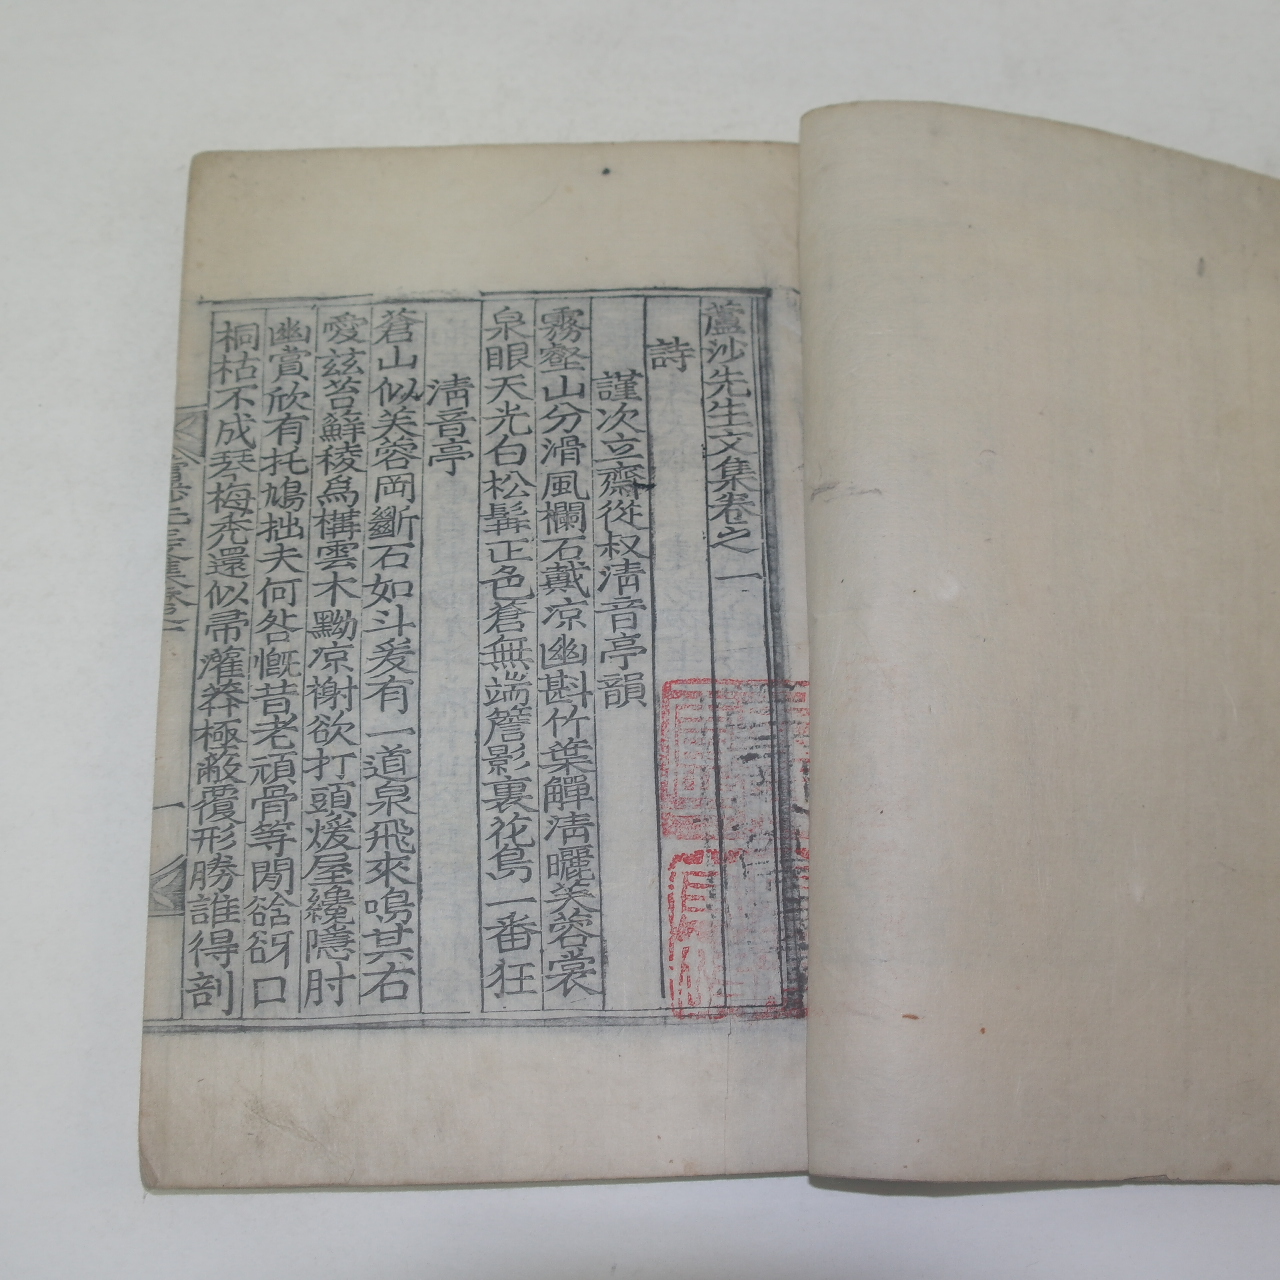 蘆沙先生文集卷之一
詩
謹次立齋從叔淸音亭韻
霧壑山分滑風欄石戴凉幽斟竹葉觶淸曬芙蓉裳
泉眼天光白松髥正色蒼無端簷影裏花鳥一番狂
淸音亭
蒼山似芙蓉岡斷石如斗爰有一道泉飛來鳴其右
愛玆苔蘚稜爲構雲木黝凉榭欲打頭煖屋纔隱肘
幽賞欣有托鳩拙夫何咎慨昔老頑骨等閒谽谺口
桐枯不成琴梅禿還似帚灌莽極蔽覆形勝誰得剖
一